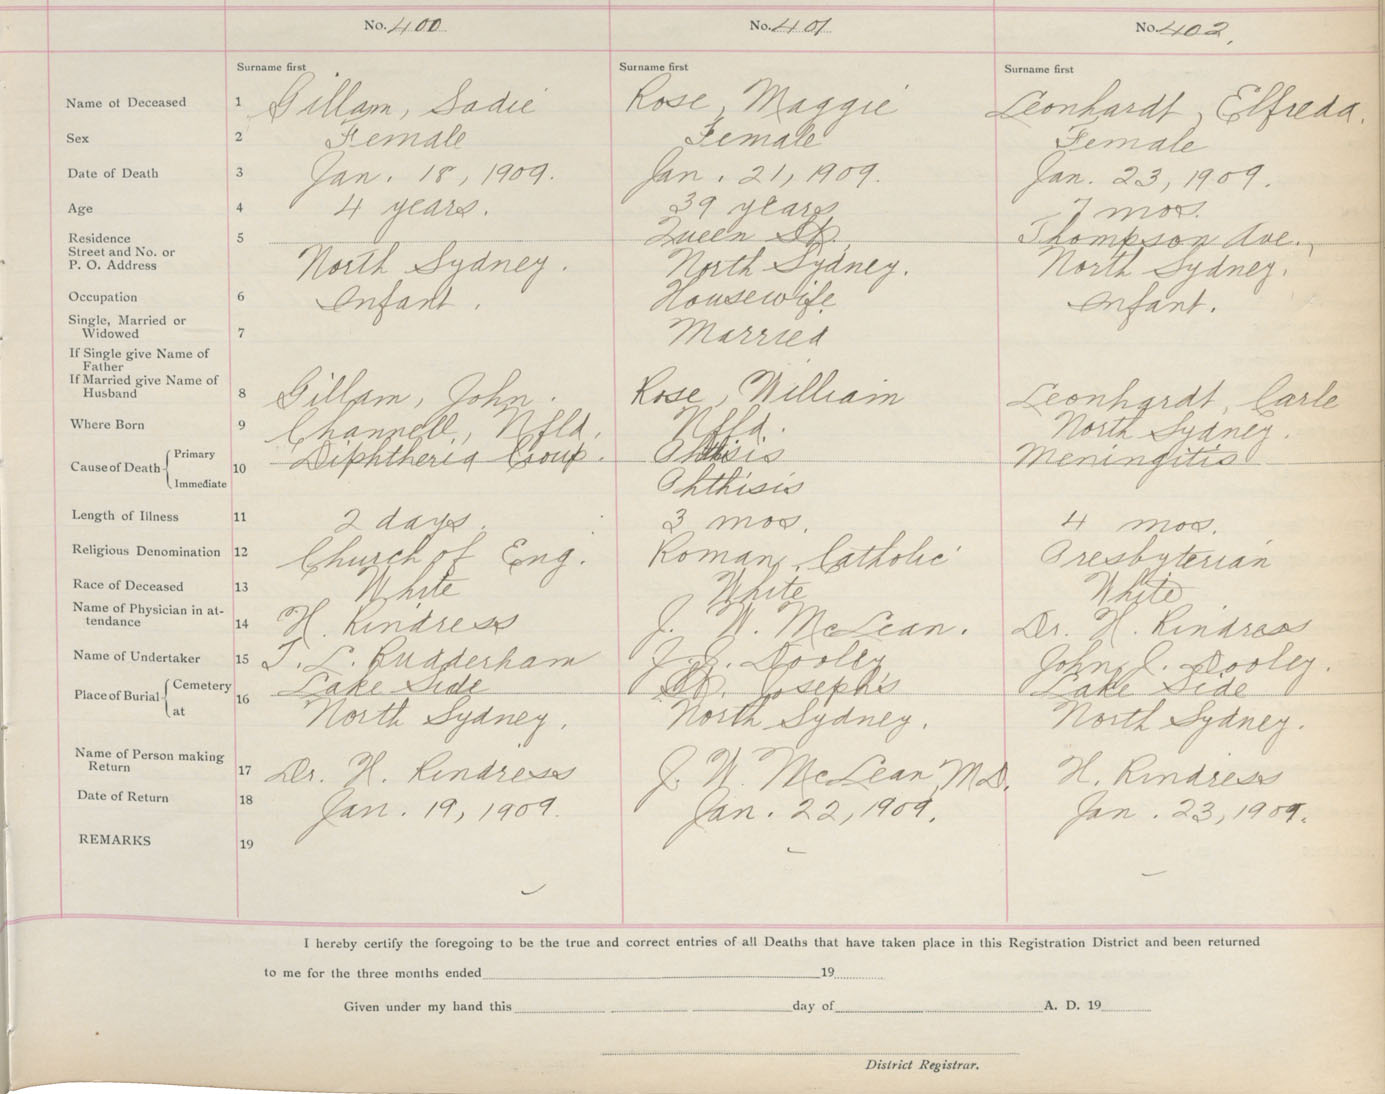 No. 400 No. 401 No. 402
Surname first Surname first Surname first
Name of Deceased 1 Gillam, Sadie Rose, Maggie Leonhardt, Elfreda.
Sex 2 Female Female Female
Date of Death 3 Jan. 18, 1909. Jan. 21, 1909. Jan. 23, 1909.
Age 4 4 years. 39 years 7 mos.
Residence 5 Queen St. Thompson Ave.,
Street and No. or
P. O. Address North Sydney. North Sydney. North Sydney.
Occupation 6 Infant. Housewife Infant.
Single, Married or
Widowed 7 Married
If Single give Name of
Father
If Married give Name of
Husband 8 Gillam, John. Rose, William Leonhardt, Carle
Where Born 9 Channell, Nfld. Nfld. North Sydney.
Cause of Death Primary 10 Diphtheria Croup. Phthisis Meningitis
Immediate Phthisis
Length of Illness 11 2 days. 3 mos. 4 mos.
Religious Denomination 12 Church of Eng. Roman Catholic Presbyterian
Race of Deceased 13 White White White
Name of Physician in at-
tendance 14 H. Rindress J. W. McLean. Dr. H. Rindress
Name of Undertaker 15 T. L. Rudderham J. J. Dooley John J. Dooley.
Place of Burial Cemetery 16 Lake Side St. Joseph's Lake Side
at North Sydney. North Sydney. North Sydney.
Name of Person making
Return 17 Dr. H. Rindress J. W. McLean, M.D. H. Rindress
Date of Return 18 Jan. 19, 1909. Jan. 22, 1909. Jan. 23, 1909.
REMARKS 19
I hereby certify the foregoing to be the true and correct entries of all Deaths that have taken place in this Registration District and been returned
to me for the three months ended 19
Given under my hand this day of A. D. 19
District Registrar.